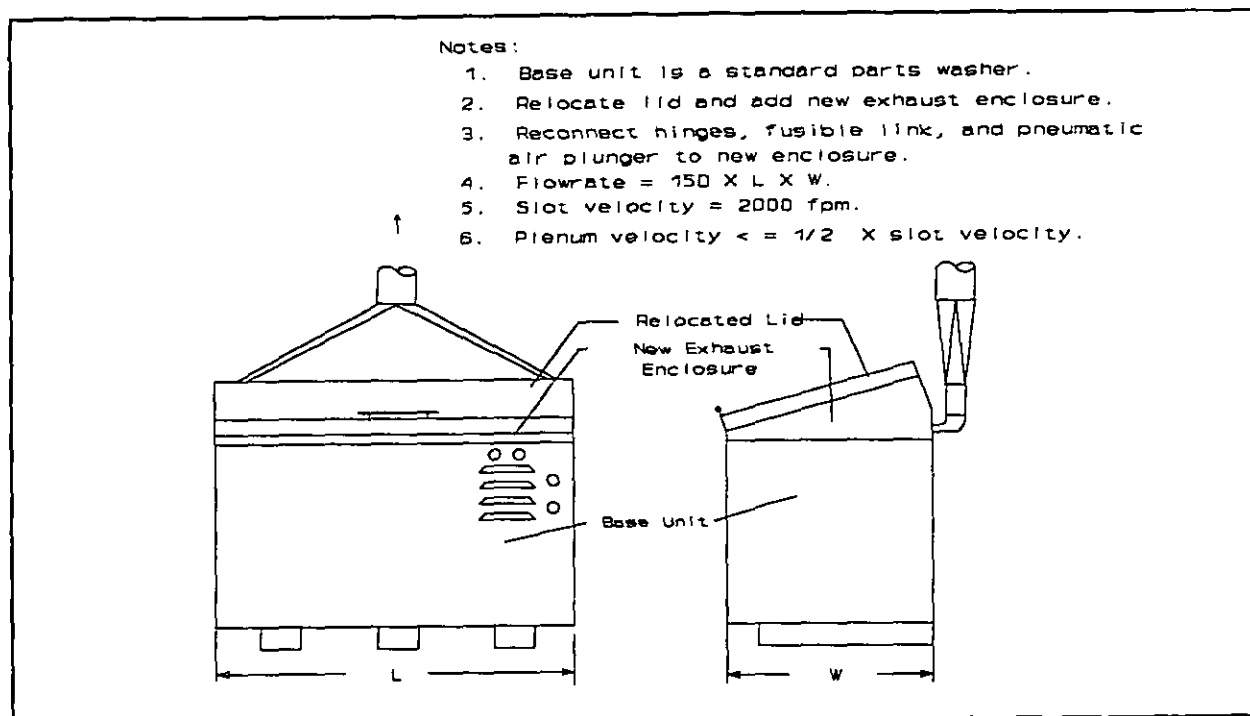 Notes:
1. Base unit is a standard parts washer.
2. Relocate lid and add new exhaust enclosure.
3. Reconnect hinges, fusible link, and pneumatic
air plunger to new enclosure.
4. Flowrate = 150 X L X W.
5. Slot velocity = 2000 fpm.
6. Plenum velocity < = 1/2 X slot velocity.
Relocated Lid
New Exhaust
Enclosure
Base Unit
L
W